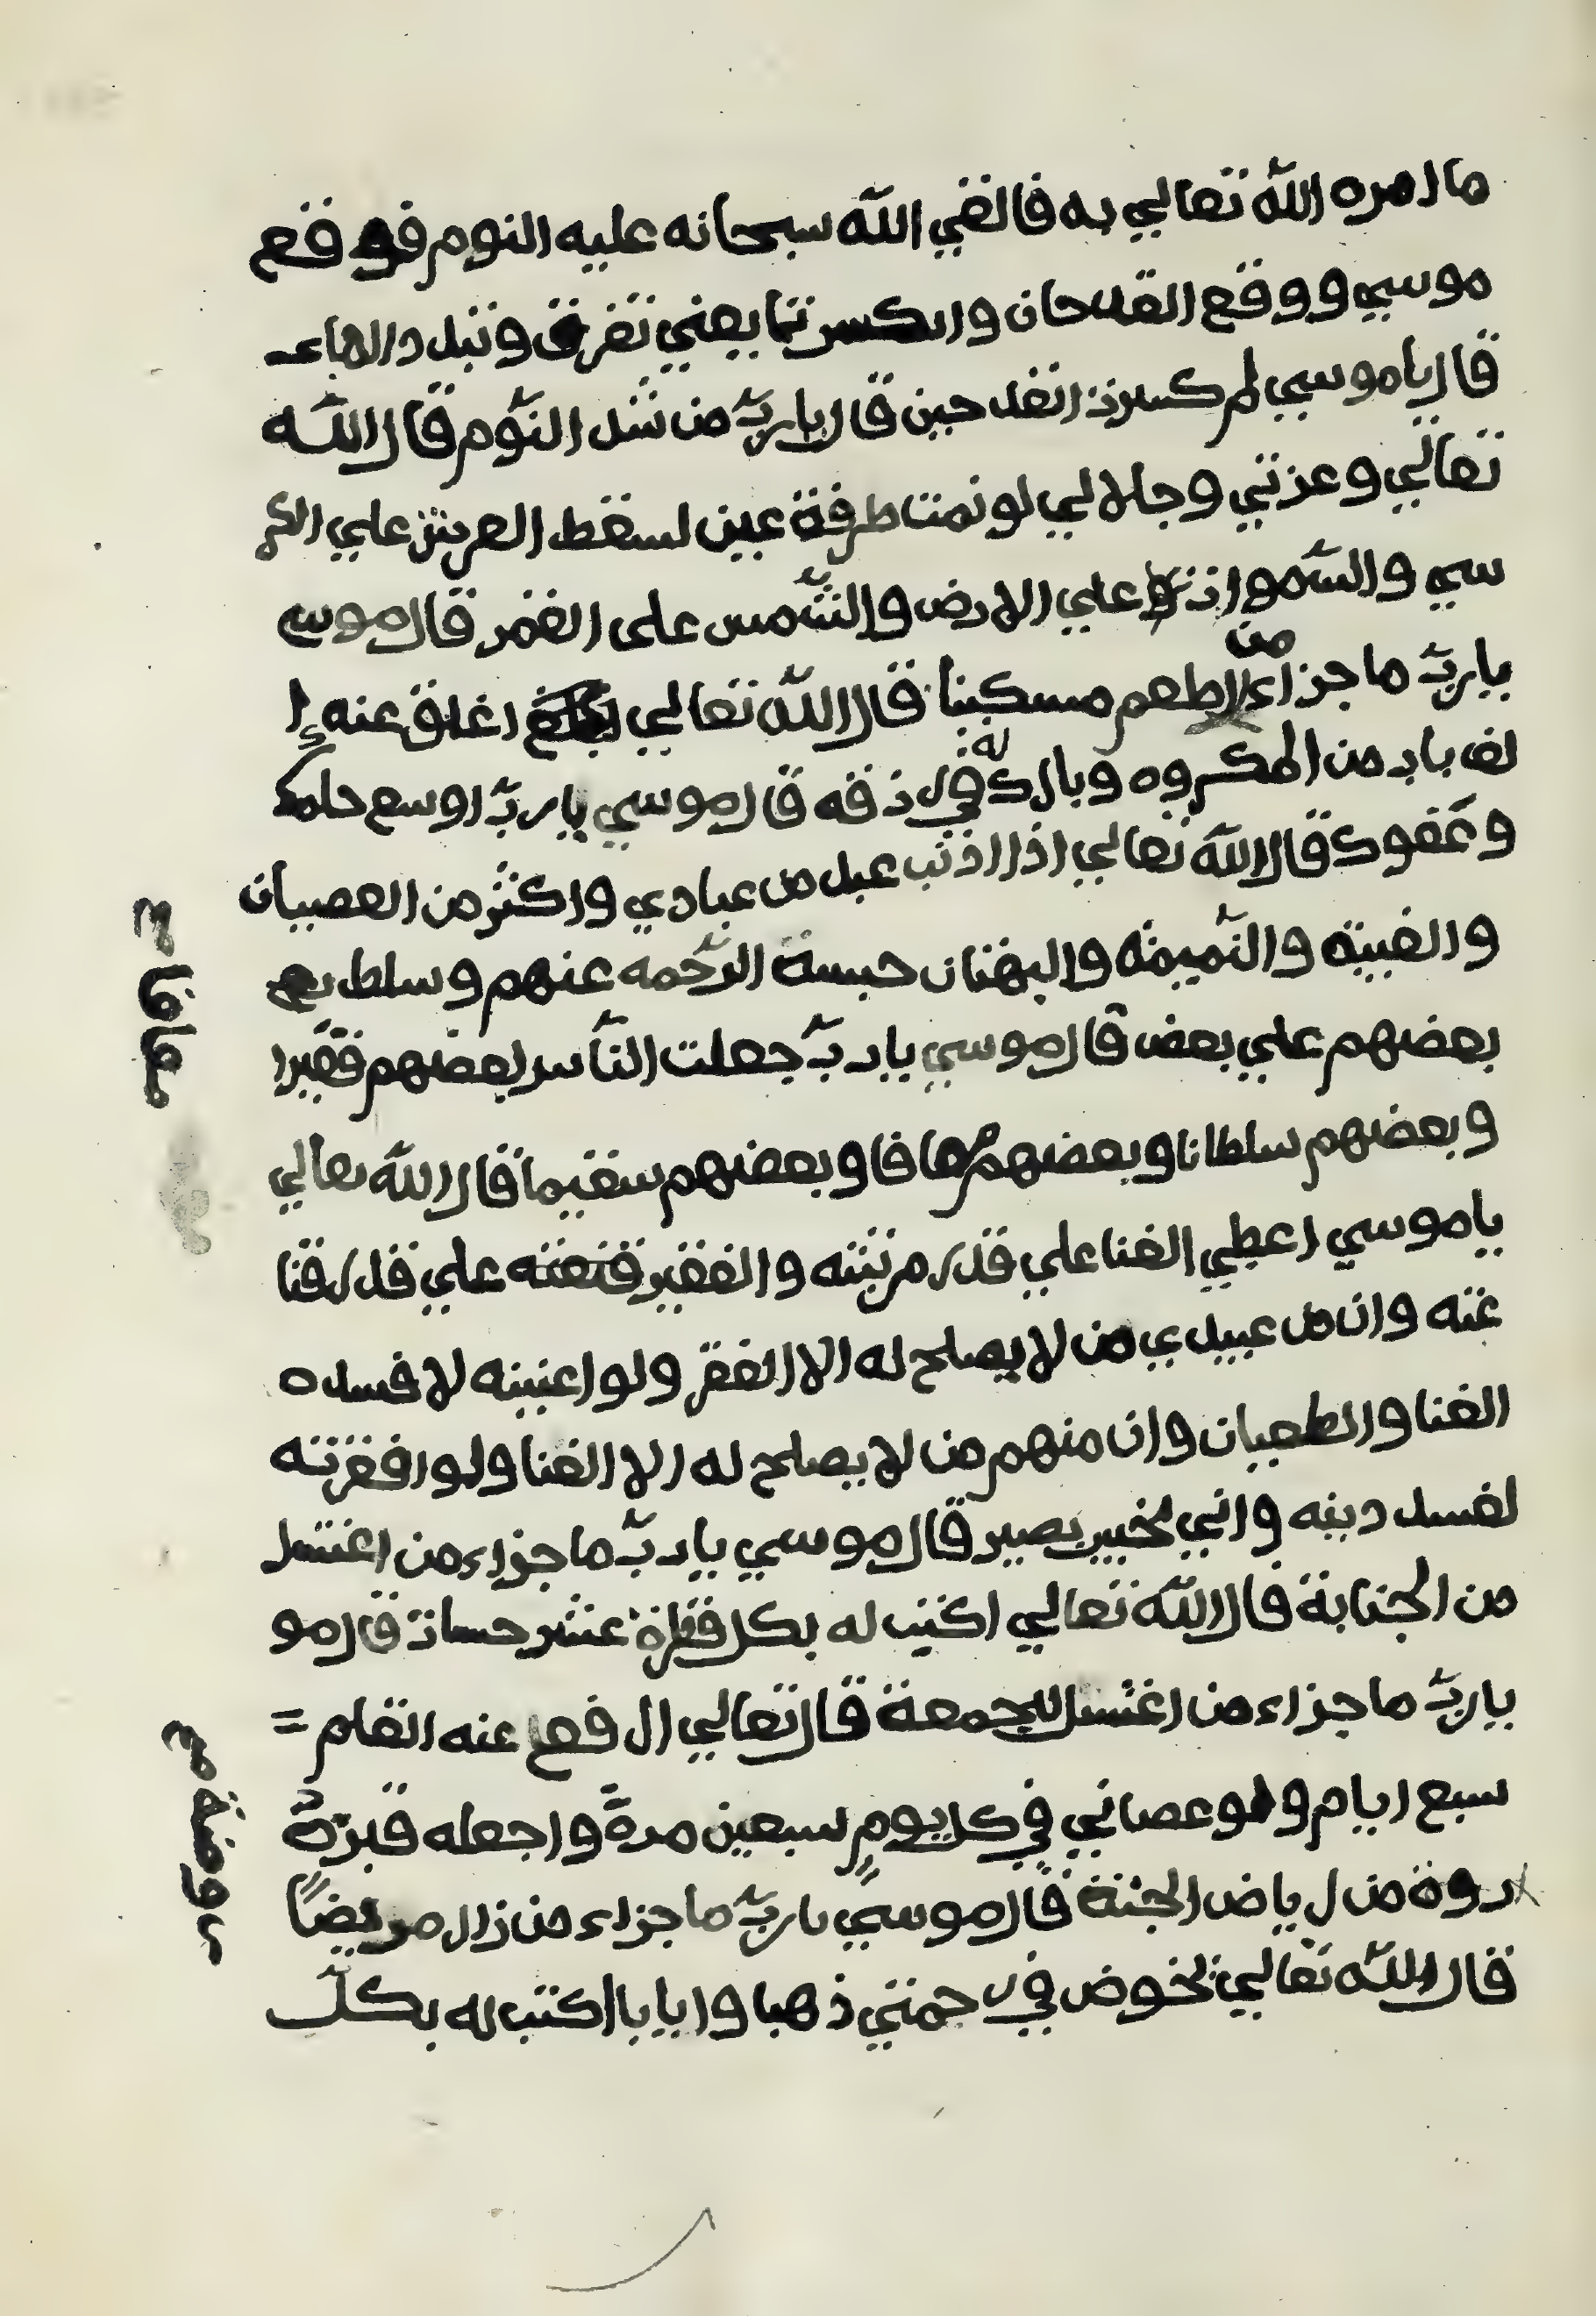 ما امره الله تعالي به فالقي الله سبحانه عليه النوم فوقع
موسي ووقع القدحان وانكسرتا يعني تفرق وتبدد الماء
قال ياموسي لم كسرت القدحين قال يارب من شد النوم قال الله
تعالي وعزتي وجلالي لو نمت طرفة عين لسقط العرش علي الكر
سي والسموات علي الارض والشمس على القمر قال موسي
يارب ما جزاء من اطعم مسكينا قال الله تعالي اغلق عنه ا
لف باب من المكروه وبارك له في رزقه قال موسي يارب اوسع حلمك
وعفوك قال الله تعالي اذا اذنب عبد من عبادي واكثر من العصيان
والغيبة والنميمة والبهتان حبسة الرحمه عنهم وسلط
بعضهم علي بعض قال موسي يارب جعلت الناس بعضهم فقيرا
وبعضهم سلطانا وبعضهم معافا وبعضهم سقيما قال الله تعالي
ياموسي اعطي الغنا علي قدر مرتبته والفقير قنعته علي قدر قنا
عته وان من عبيدي من لا يصلح له الا الفقر ولو اغنيته لافسده
الغنا والطغيان وان منهم من لا يصلح له الا الغنا ولو افقرته
لفسد دينه واني لخبير بصير قال موسي يارب ما جزاء من اغتسل
من الجنابة قال الله تعالي اكتب له بكل قطرة عشر حسات قال مو
يارب ما جزاء من اغتسل للجمعة قال تعالي ارفع عنه القلم =
سبع ايام ولو عصاني في كل يوم سبعين مرة واجعله قبره
روة من رياض الجنة قال موسي يارب ما جزاء من زار مريضا
قال الله تعالي يخوض في رحمتي ذهبا وايابا اكتب له بكل
معافا صح
روضة صح